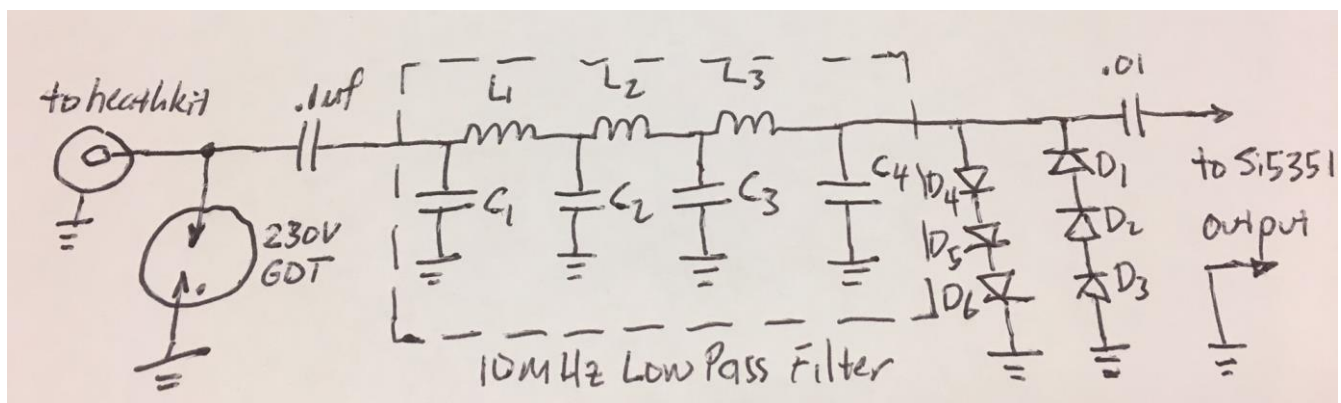 to heathkit
.1uf
L1
L2
L3
.01
230V
GDT
C1
C2
C3
C4
D4
D5
D6
D1
D2
D3
to Si5351
output
10MHz Low Pass Filter